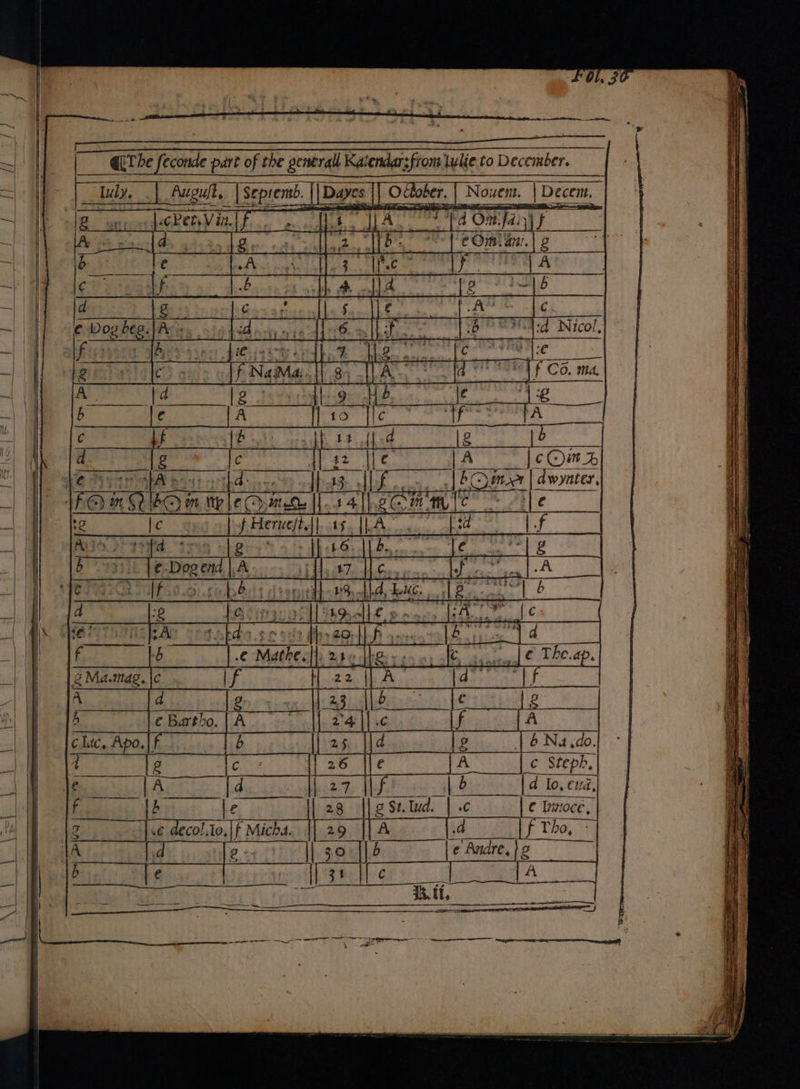 Fol. 36
The seconde part of the generall Kalendar: from Iulie to December.
Iuly. | August. | Septemb. || Dayes || October. | Nouem. | Decem.
g | c Pet. Vin. | f || 1 || A | d Om. san | f
A | d | g || 2 || b | e Om. an. | g
b | e | A || 3 || c | f | A
c | f | b || 4 || d | g | b
d | g | c || 5 || e | A | c
e Dog beg. | A | d || 6 || f | b | d Nicol.
f | b | e || 7 || g | c | e
g | c | f NaMa. || 8 || A | d | f Co. ma.
A | d | g || 9 || b | e | g
b | e | A || 10 || c | f | A
c | f | b || 11 || d | g | b
d | g | c || 12 || e | A | c ☉ in ♑
e | A | d || 13 || f | b ☉ in ♐ | d wynter.
f ☉ in ♌ | b ☉ in ♍ | e ☉ in ♎ || 14 || g ☉ in ♏ | c | e
g | c | f Heruest. || 15 || A | d | f
A | d | g || 16 || b | e | g
b | e Dog end | A || 17 || c | f | A
c | f | b || 18 || d, Luc. | g | b
d | g | c || 19 || e | A | c
e | A | d || 20 || f | b | d
f | b | e Mathe. || 21 || g | c | e Tho.ap.
g Ma.mag. | c | f || 22 || A | d | f
A | d | g || 23 || b | e | g
b | e Bartho. | A || 24 || c | f | A
c Iac. Apo. | f | b || 25 || d | g | b Na.do.
d | g | c || 26 || e | A | c Steph.
e | A | d || 27 || f | b | d Io, eua,
f | b | e || 28 || g St. Iud. | c | e Innoce,
g | c decol.Io, | f Micha. || 29 || A | d | f Tho,
A | d | g || 30 || b | e Andre, | g
b | e | || 31 || c | | A
B.ii.